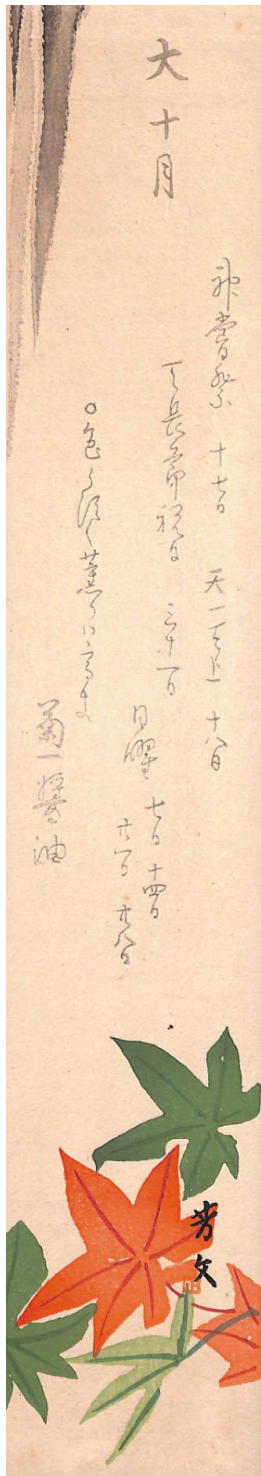 大十月
神嘗祭 十七日 天一天上 十八日
天長節祝日 三十一日
日曜 七日 十四日
廿一日 廿八日
○色うすく薫りハ高き
菊一醤油
芳文